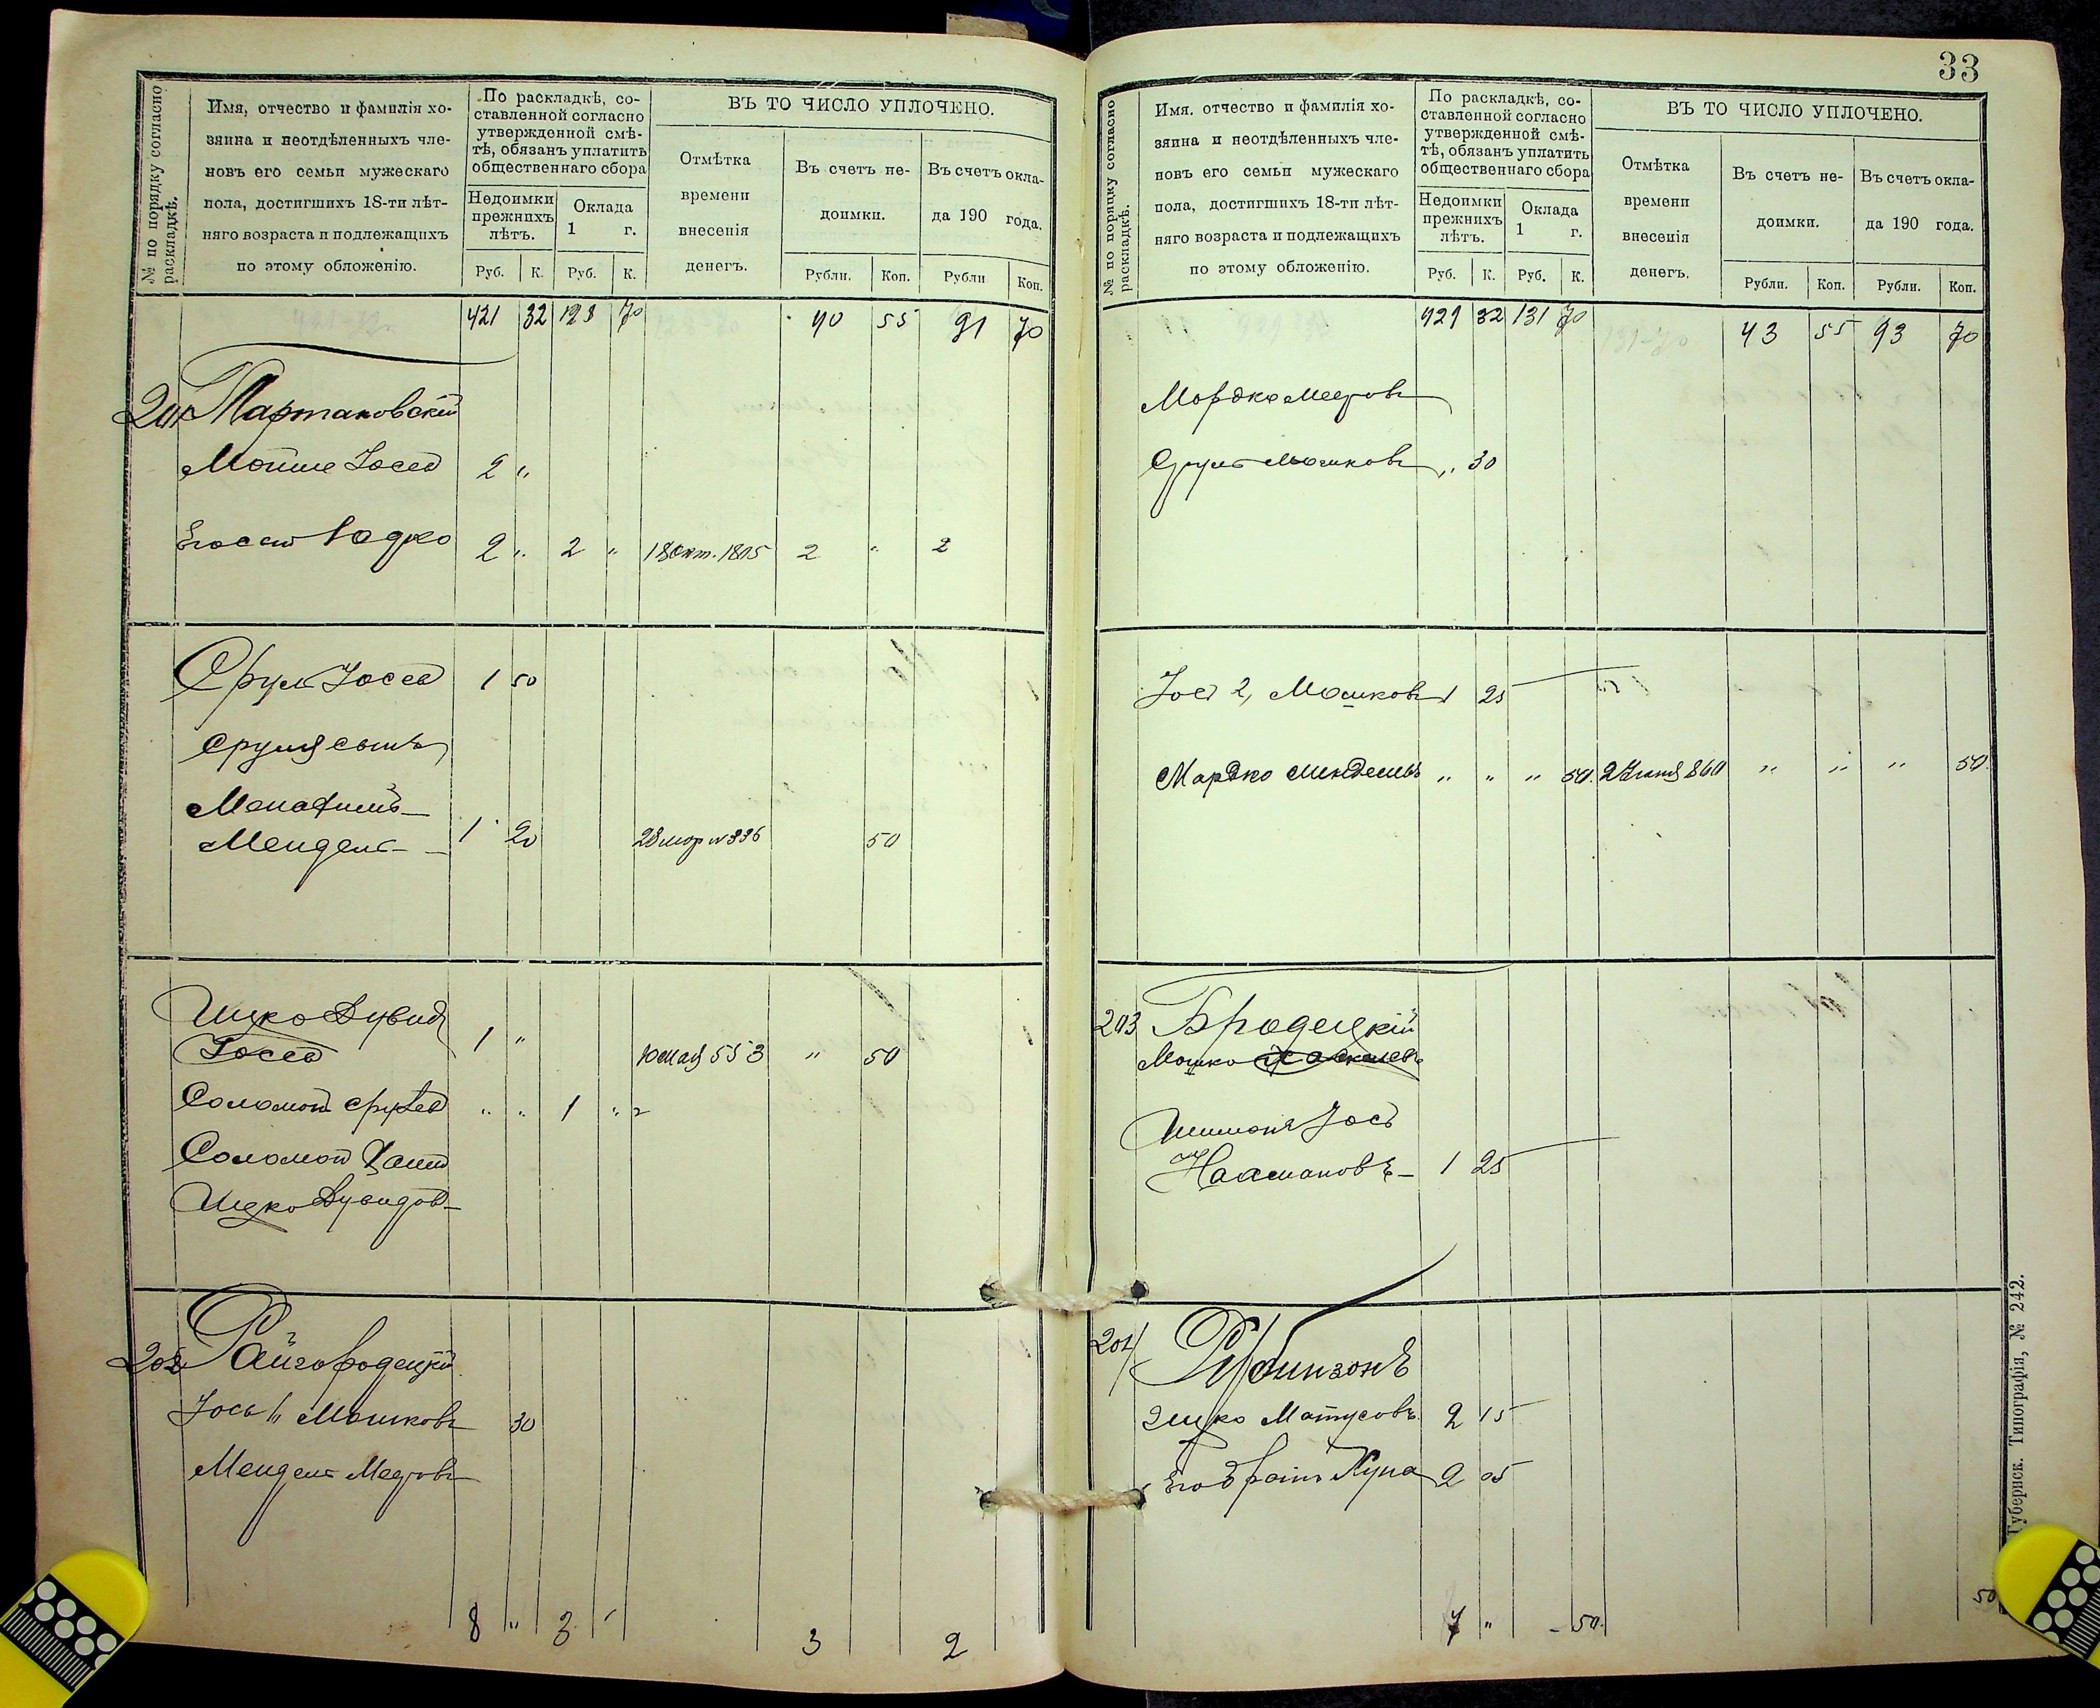 33
№ по порядку согласно раскладкѣ.
Имя, отчество и фамилія хо-
зяина и неотдѣленныхъ чле-
новъ его семьи мужескаго
пола, достигшихъ 18-ти лѣт-
няго возраста и подлежащихъ
по этому обложенію.
По раскладкѣ, со-
ставленной согласно
утвержденной смѣ-
тѣ, обязанъ уплатить
общественнаго сбора
Недоимки
прежнихъ
лѣтъ.
Оклада
1 г.
Руб. К. Руб. К.
ВЪ ТО ЧИСЛО УПЛОЧЕНО.
Отмѣтка
времени
внесенія
денегъ.
Въ счетъ не-
доимки.
Въ счетъ окла-
да 190 года.
Рубли. Коп. Рубли Коп.
421 32 128 70 40 55 91 70
Тартаковскій
Мошше Іосев 2 "
Іодко 2 " 2 " 18 окт. 1805 2 " 2
Срул Іосев 1 50
Сруля сынъ
Менделъ 1 20 336 50
Ицко Дувидъ
Іосев 1 " 10 мая 553 " 50
Соломон " " 1 "
Соломон
Ицко Дувидов
202 Райгородецкій
Іось 1, Мошковъ 30
Мендель Мееровъ
8 " 3 3 2
№ по порядку согласно раскладкѣ.
Имя, отчество и фамилія хо-
зяина и неотдѣленныхъ чле-
новъ его семьи мужескаго
пола, достигшихъ 18-ти лѣт-
няго возраста и подлежащихъ
по этому обложенію.
По раскладкѣ, со-
ставленной согласно
утвержденной смѣ-
тѣ, обязанъ уплатить
общественнаго сбора
Недоимки
прежнихъ
лѣтъ.
Оклада
1 г.
Руб. К. Руб. К.
ВЪ ТО ЧИСЛО УПЛОЧЕНО.
Отмѣтка
времени
внесенія
денегъ.
Въ счетъ не-
доимки.
Въ счетъ окла-
да 190 года.
Рубли. Коп. Рубли. Коп.
429 32 131 70 43 55 93 70
Мордко Мееровъ
Сруль Мошковъ " 30
Іос 2, Мошковъ 1 25
Мардко Менделевъ " " " 50. 860 " " " 50.
203 Бродецкій
Мошко
Шимонъ Іосъ
Наамановъ 1 25
204 Рубинзонъ
Ицко Матусовъ 2 15
Его братъ Нуна 2 05
7 " 50. 50
Губернск. Типографія, № 242.